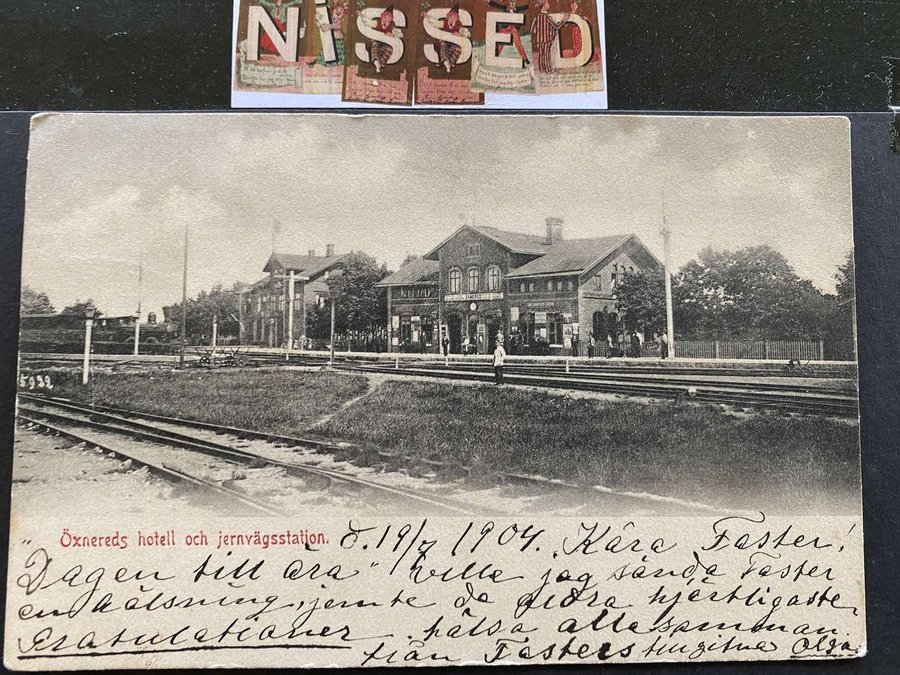 NISSED
5932
Öxnereds hotell och jernvägsstation. d. 19/7 1904. "Kära Faster!
"Dagen till ära" ville jag sända Faster
en hälsning, jemte de allra hjärtligaste
Gratulationer. hälsa alla samman
från Fasters tillgifna Olga